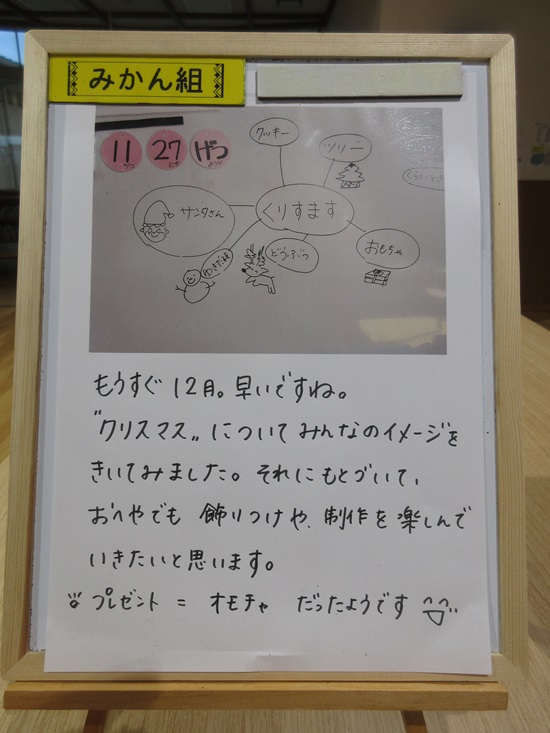 みかん組
11 27 げつ
がつ にち ようび
クッキー
ツリー
サンタさん
くりすます
おもちゃ
ゆきだるま
どうぶつ
もうすぐ12月。早いですね。
"クリスマス"についてみんなのイメージを
きいてみました。それにもとづいて、
おへやでも飾りつけや、制作を楽しんで
いきたいと思います。
プレゼント = オモチャ だったようです